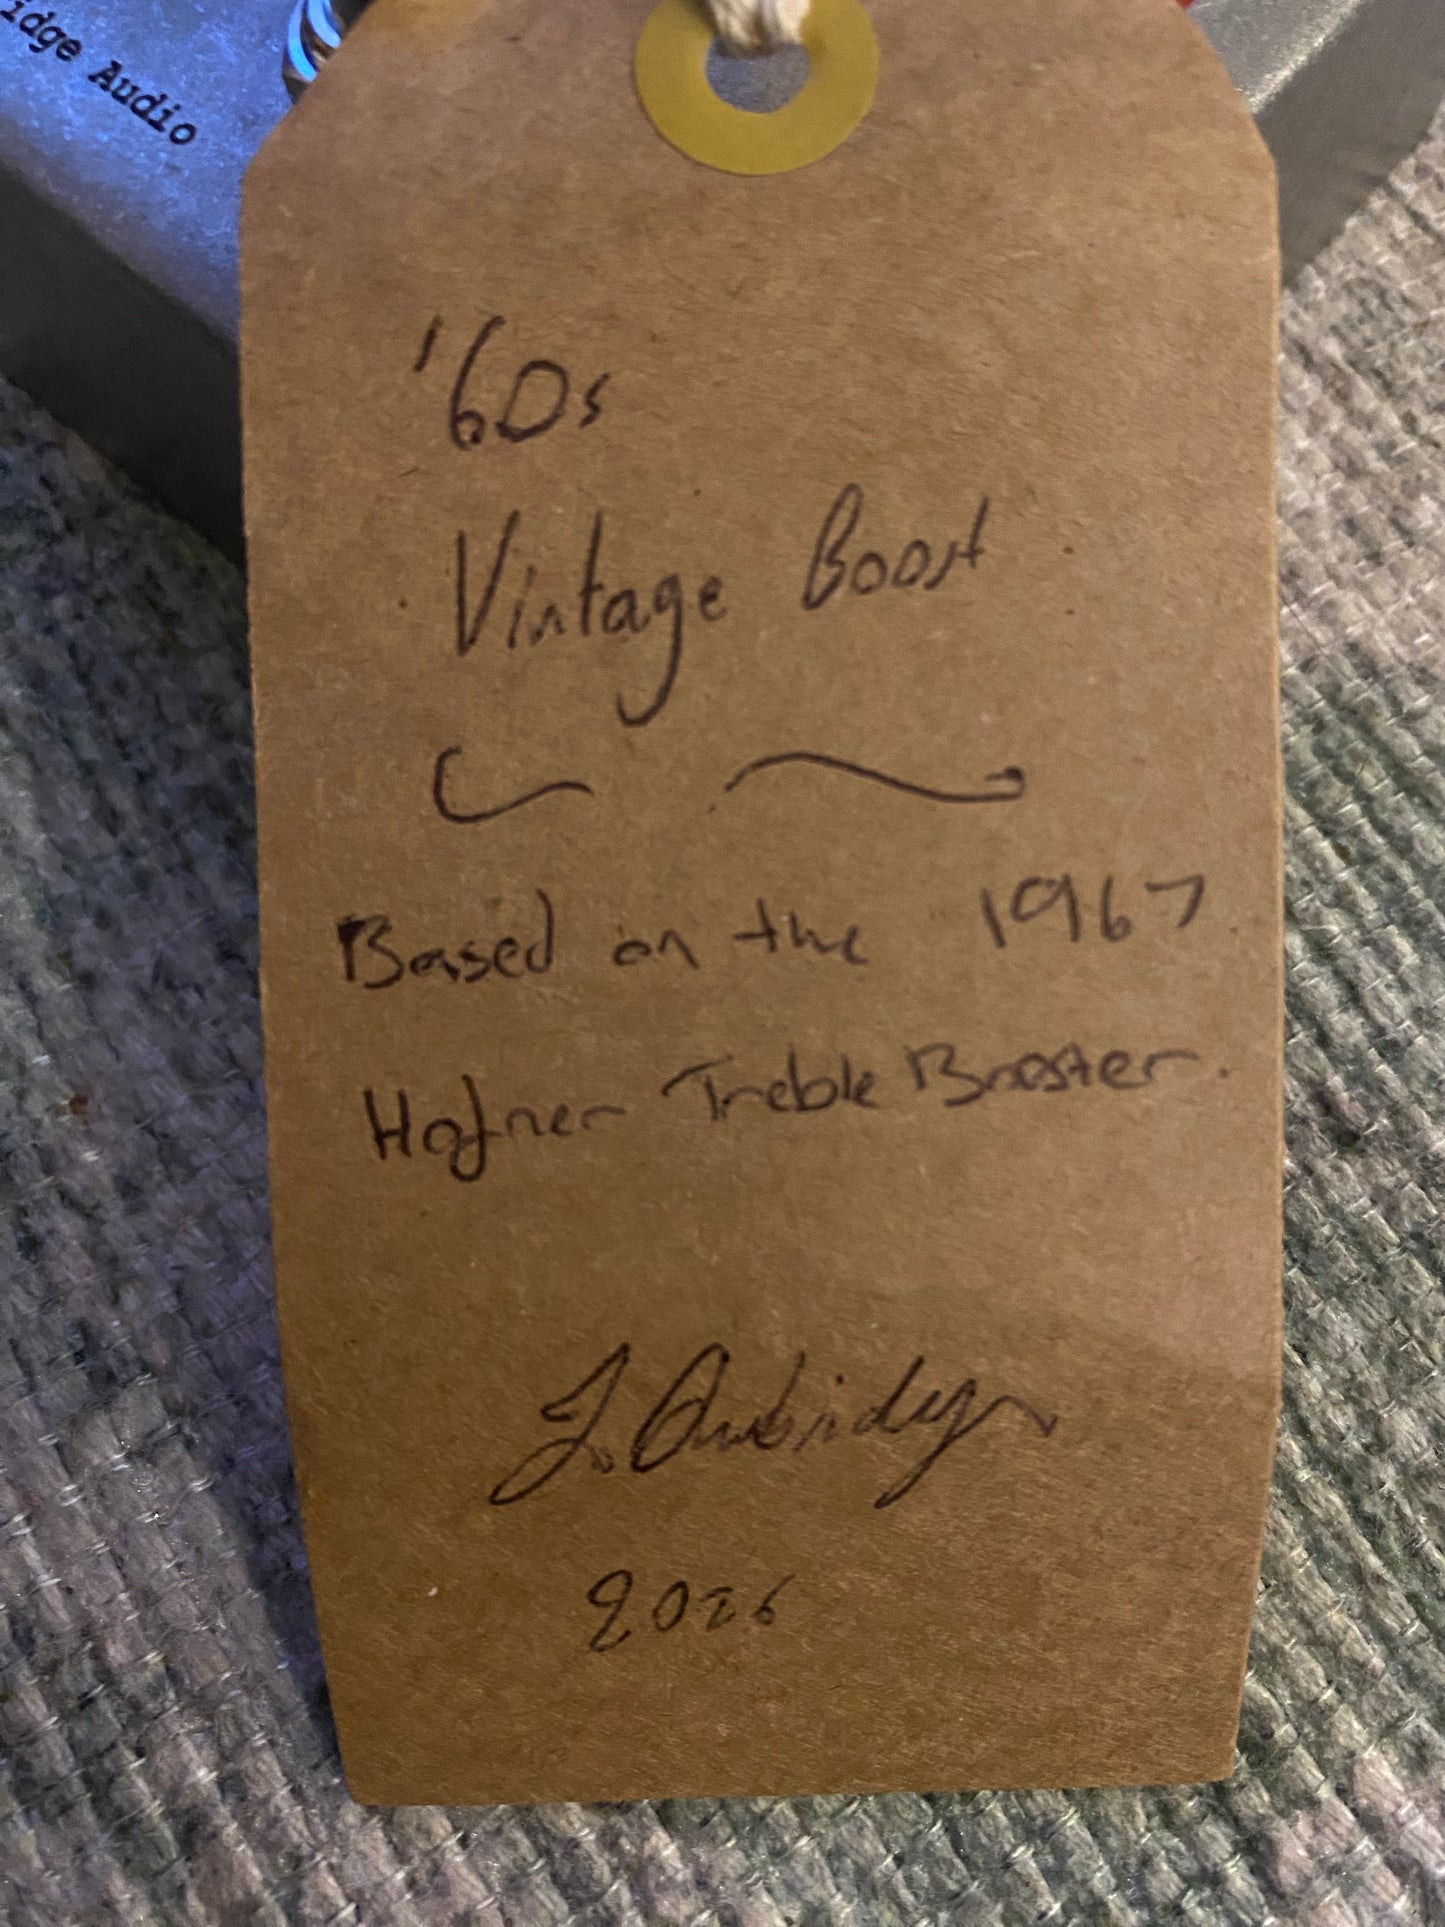 idge Audio
'60s
Vintage Boost
Based on the 1967
Hofner Treble Booster.
J. Ambridge
2026